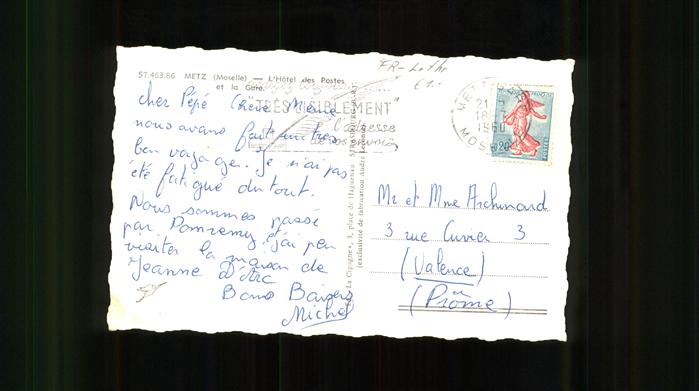 57.463.86 METZ (Moselle) — L'Hôtel des Postes
et la Gare.
FR-Lothr
€1-
"TRÈS LISIBLEMENT"
l'adresse
METZ
21
18
1960
MOSELLE
0,20
Cher Pépé Chère Mémé
nous avons fait un très
bon voyage. Je n'ai pas
été fatigué du tout.
Nous sommes passé
par Domremy et j'ai pu
visiter la maison de
Jeanne D'Arc
Bons Baisers
Michel
"La Cigogne", 3, place de Haguenau STRASBOURG
(exclusivité de fabrication André
Mr et Mme Archinard
3 rue Cuvier 3
(Valence)
(Drôme)